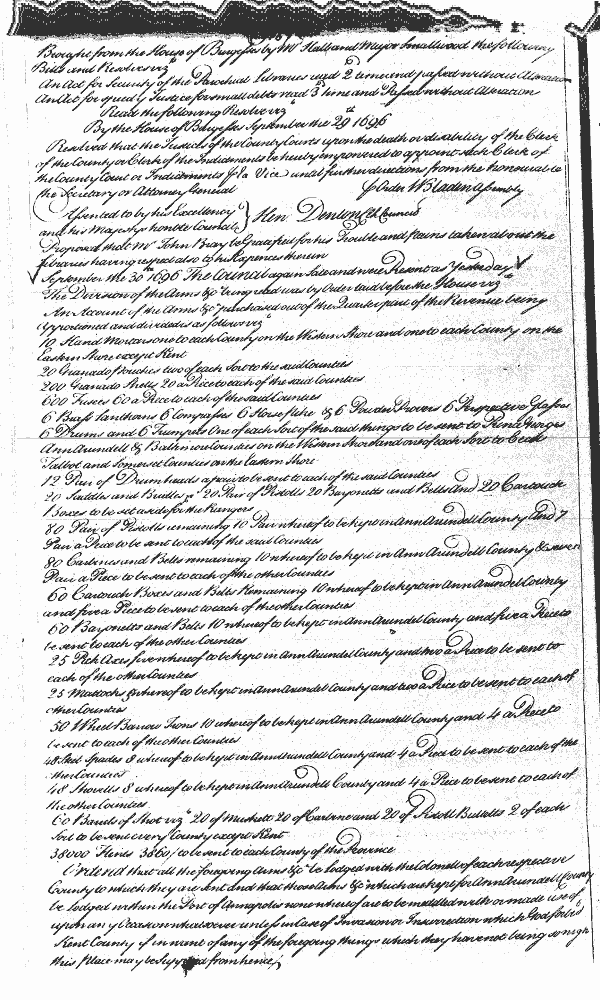 Brought from the House of Burgesses by Mr Hall and Major Smallwood the following
Bills and Resolves viz
An Act for Security of the Parochial Libraries read 2 time and passed without Alteration
An Act for speedy Justice for small debts read 3d time and Passed without Alteration
Read the following Resolve viz
By the House of Burgesses September the 29th 1696
Resolved that the Justices of the County Courts upon the death or disability of the Clerk
of the County or Clerk of the Indictments be hereby impowered to appoint such Clerk of
the County Court or Indictments Vice until further directions from the honourable
the Secretary or Attorney General
p Order W Bladen Assembly
Assented to by his Excellency
and his Majestys honble Council
Hen Denton Cl Council
Proposed that Mr John Bray be Gratified for his Trouble and pains taken about the
libraries having regard also to his Expences therein
September the 30th 1696 The Council again Sate and were Present as Yesterday
The Division of the Arms &c being read was by Order laid before the House viz
An Account of the Arms &c purchased out of the Quarter part of the Revenue being
apportioned and divided as follows viz
10 Hand Mortars one to each County on the Western Shore and one to each County on the
Eastern Shore except Kent
20 Granado Pouches two of each Sort to the said Counties
200 Granado Shells 20 a Piece to each of the said Counties
600 Fusees 60 a Piece to each of the said Counties
6 Brass Lanthorns 6 Compasses 6 Horse & 6 Powder Provers 6 Perspective Glasses
6 Drums and 6 Trumpets One of each Sort of the said things to be sent to Prince Georges
Ann Arundell & Baltimore Counties on the Western Shore and one of each Sort to Cecil
Talbot and Somerset Counties on the Eastern Shore
12 Pair of Drumheads a pair to be sent to each of the said Counties
20 Saddles and Bridles 20 Pair of Pistolls 20 Bayonetts and Belts And 20 Cartouch
Boxes to be set aside for the Rangers
80 Pair of Pistolls remaining 10 Pair whereof to be kept in Ann Arundell County And 7
Pair a Piece to be sent to each of the said Counties
80 Carbines and Belts remaining 10 whereof to be kept in Ann Arundell County & seven
Pair a Piece to be sent to each of the other Counties
60 Cartouch Boxes and Belts Remaining 10 whereof to be kept in Ann Arundel County
and five a Piece to be sent to each of the other Counties
60 Bayonetts and Belts 10 whereof to be kept in Ann Arundel County and five a Piece to
be sent to each of the other Counties
25 Pick Axes five whereof to be kept in Ann Arundel County and two a Piece to be sent to
each of the other Counties
25 Mattocks 5 whereof to be kept in Ann Arundel County and two a Piece to be sent to each of
other Counties
50 Wheel Barrow Irons 10 whereof to be kept in Ann Arundell County and 4 a Piece to
be sent to each of the other Counties
48 Steel Spades 8 whereof to be kept in Ann Arundell County and 4 a Piece to be sent to each of the
other Counties
48 Shovells 8 whereof to be kept in Ann Arundell County and 4 a Piece to be sent to each of
the other Counties
60 Barels of Shot viz 20 of Muskett 20 of Carbine and 20 of Pistoll Bulletts 2 of each
Sort to be sent every County except Kent
38000 Flints 3860 to be sent to each County of the Province
Ordered that all the foregoing Arms &c be lodged with the Colonell of each respective
County to which they are sent And that those Arms &c which are kept for Ann Arundell County
be lodged within the Port of Annapolis none whereof are to be medled with or made use of
upon any Occasion whatsoever unless in Case of Invasion or Insurrection which God forbid
Kent County if in want of any of the foregoing things which they have not being so nigh
this place may be Supplyed from hence